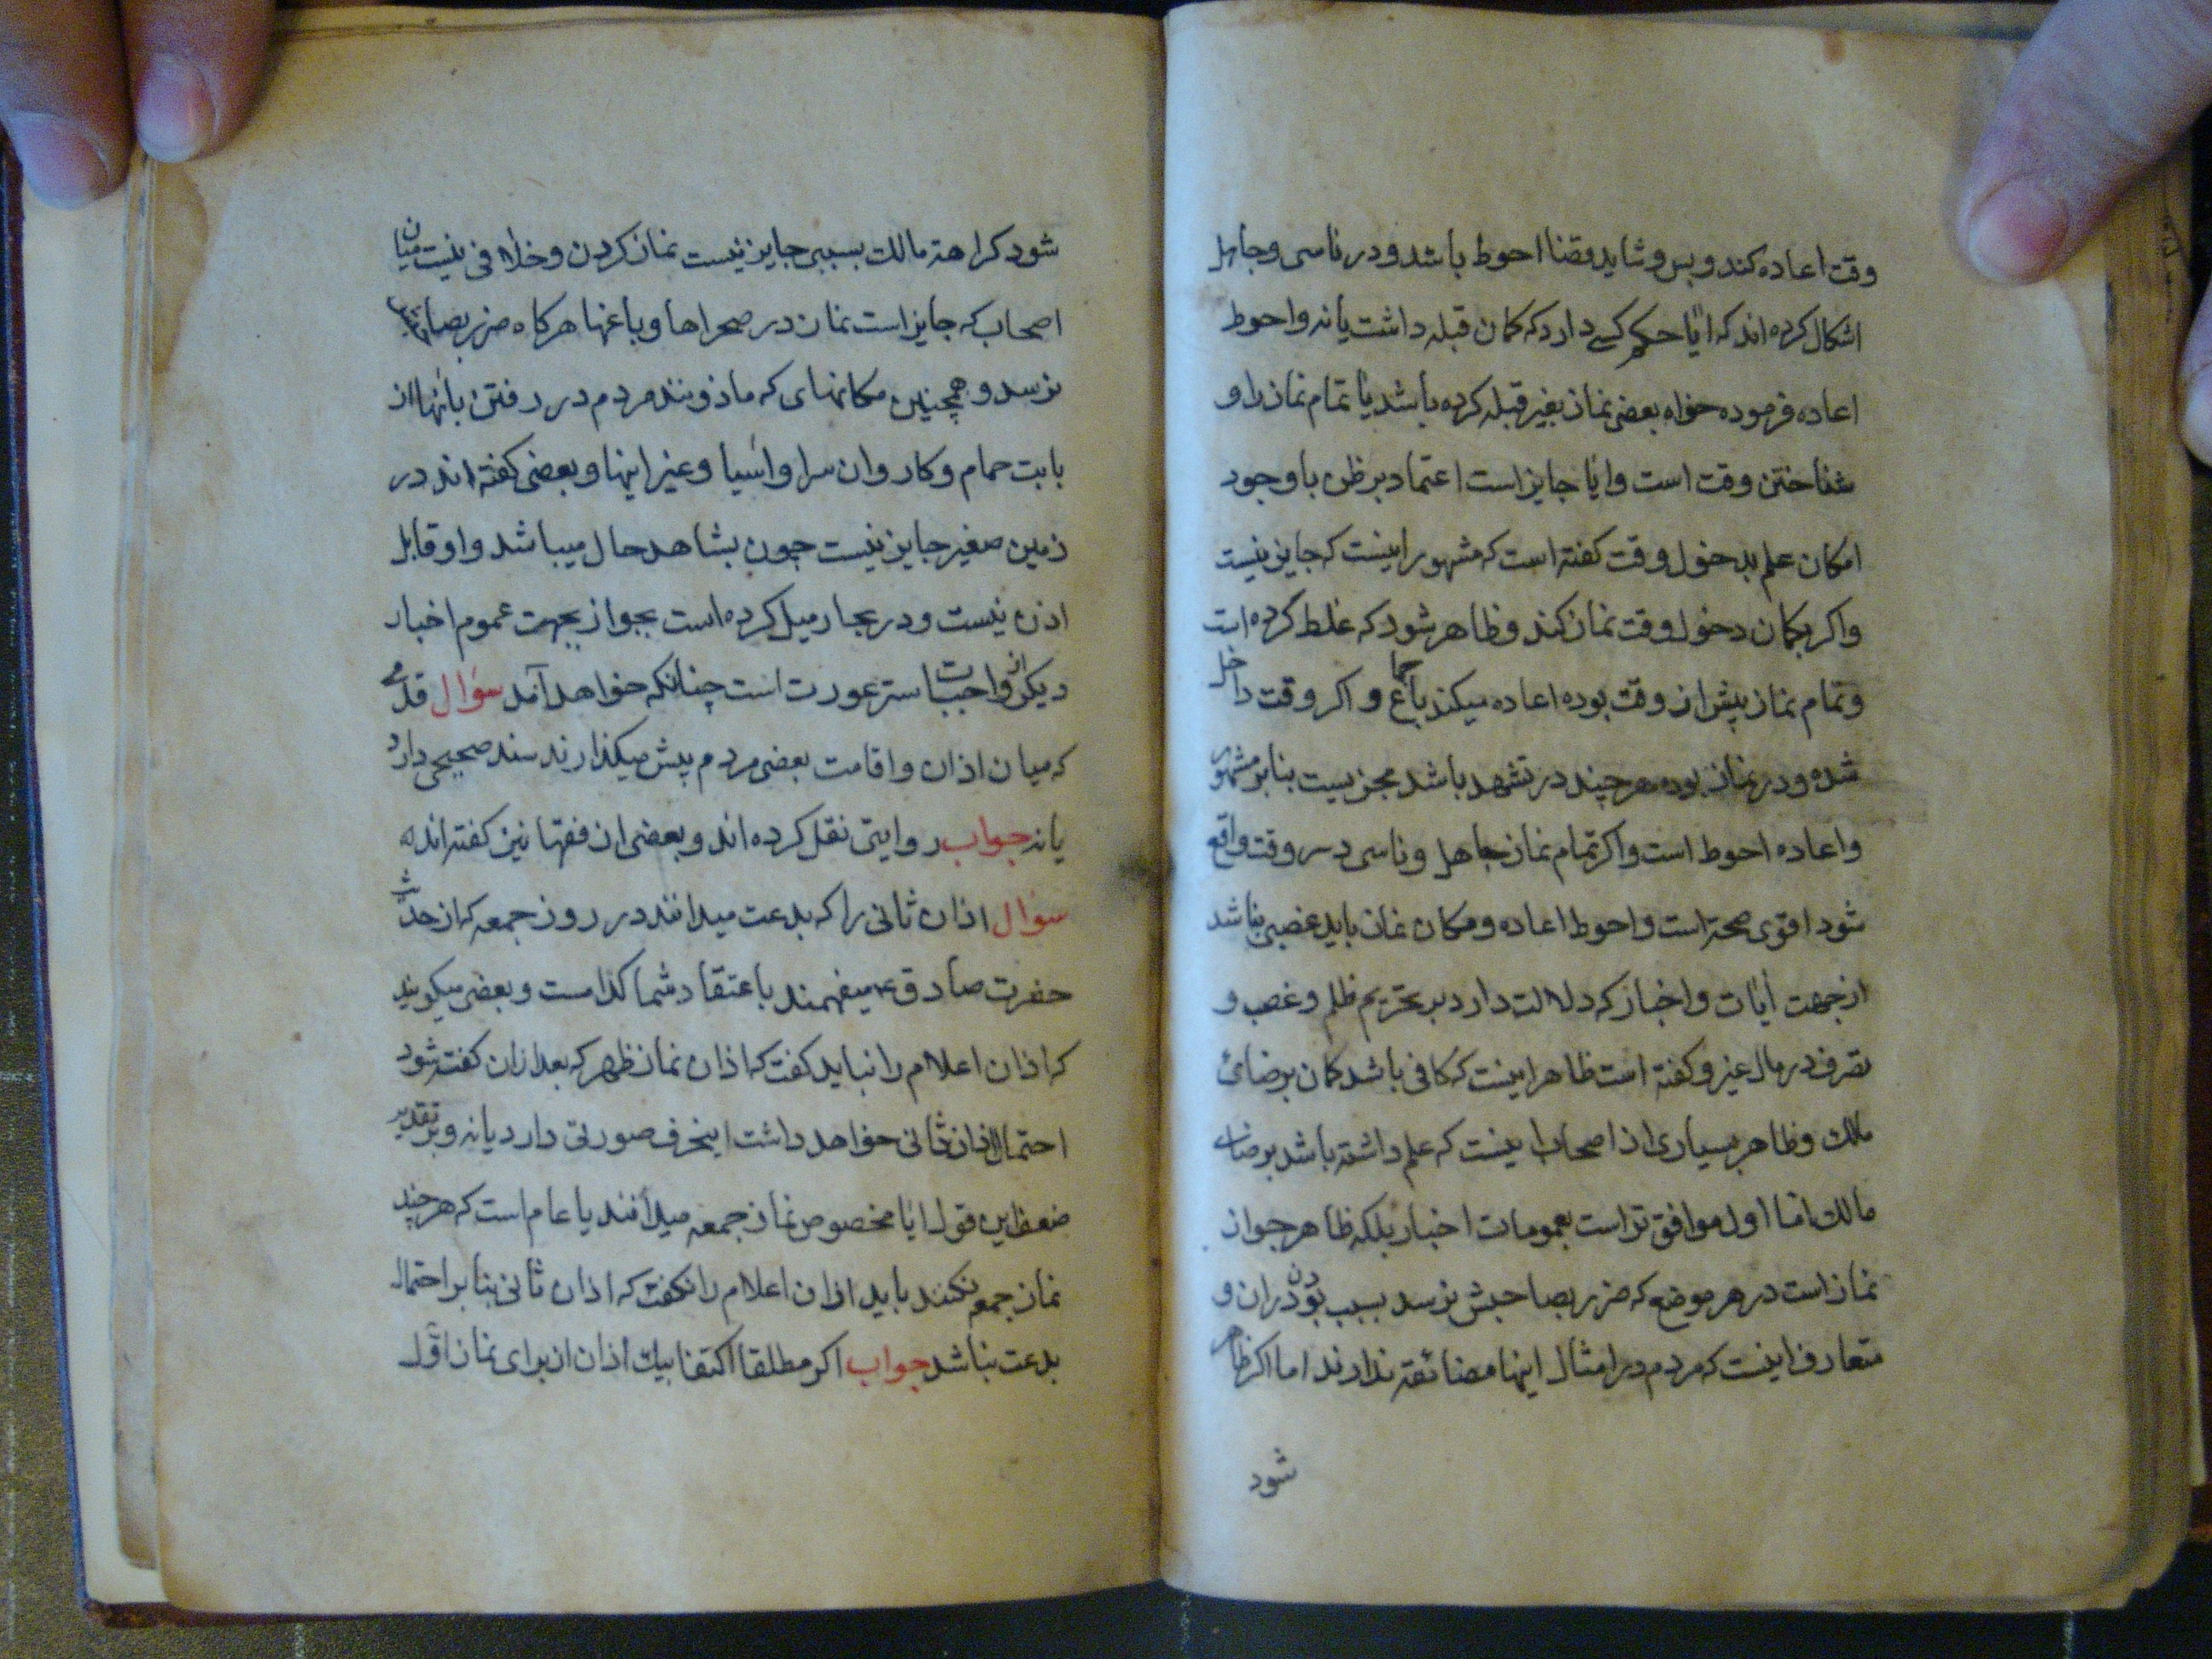 وقت اعاده کند و بس و شاید قضا احوط باشد و در ناسی و جاهل
اشکال کرده اند که ایا حکم کسی دارد که کمان قبله داشت یا نه و احوط
اعاده فرموده خواه بعضی نماز بغیر قبله کرده باشد یا تمام نماز را و
شناختن وقت است و ایا جایز است اعتماد بر ظن با وجود
امکان علم بدخول وقت کفته است که مشهور اینست که جایز نیست
و اکر بکمان دخول وقت نماز کند و ظاهر شود که غلط کرده است
و تمام نماز پیش از وقت بوده اعاده میکند باجماع و اکر وقت داخل
شده و در نماز بوده هر چند در تشهد باشد مجزیست بنابر مشهور
و اعاده احوط است و اکر تمام نماز جاهل و ناسی در وقت واقع
شود اقوی صحة است و احوط اعاده و مکان نماز باید غصبی نباشد
از جهت ایات و اخبار که دلالت دارد بر تحریم ظلم و غصب و
تصرف در مال غیر و کفته است ظاهر اینست که کافی باشد کمان برضائ
مالک و ظاهر بسیاری از اصحاب اینست که علم داشته باشد برضای
مالک اما اول موافق تر است بعمومات اخبار بلکه ظاهر جواز
نماز است در هر موضع که ضرر بصاحبش نرسد بسبب بودن دران و
متعارف اینست که مردم در امثال اینها مضائقه ندارند اما اکر ظاهر
شود
شود کراهة مالک بسببی جایز نیست نماز کردن و خلافی نیست میان
اصحاب که جایز است نماز در صحراها و باغها هرکاه ضرر بصاحبش
نرسد و همچنین مکانهای که ماذونند مردم در رفتن بانها از
بابت حمام و کاروان سرا و اسیا و غیر اینها و بعضی کفته اند در
زمین صغیر جایز نیست چون بشاهد حال میباشد و او قابل
اذن نیست و در بحار میل کرده است بجواز بجهت عموم اخبار
دیکر از واجبات ستر عورت است چنانکه خواهد آمد سؤال قدمی
که میان اذان و اقامت بعضی مردم پیش میکذارند سند صحیحی دارد
یا نه جواب روایتی نقل کرده اند و بعضی از فقها نیز کفته اند
سؤال اذان ثانی را که بدعت میدانند در روز جمعه که از حدیث
حضرت صادق ع میفهمند باعتقاد شما کدامست و بعضی میکویند
که اذان اعلام را نباید کفت که اذان نماز ظهر که بعد از ان کفته شود
احتمال اذان ثانی خواهد داشت اینحرف صورتی دارد یا نه و بر تقدیر
ضعف این قول ایا مخصوص نماز جمعه میدانند یا عام است که هر چند
نماز جمعه نکنند باید اذان اعلام را نکفت که اذان ثانی بنابر احتمال
بدعت نباشد جواب اکر مطلقا اکتفا بیک اذان از برای نماز اول